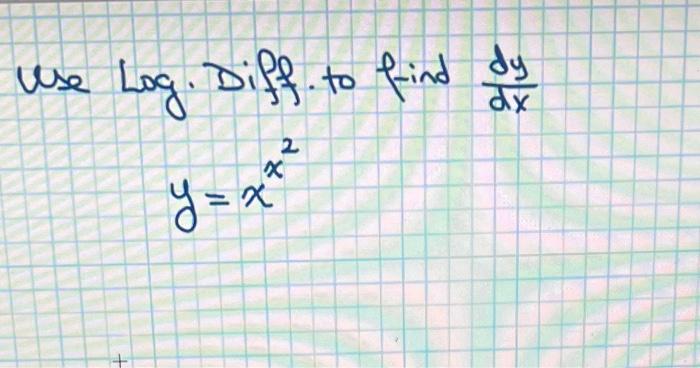 Use Log. Diff. to find dy/dx
y = x^x^2